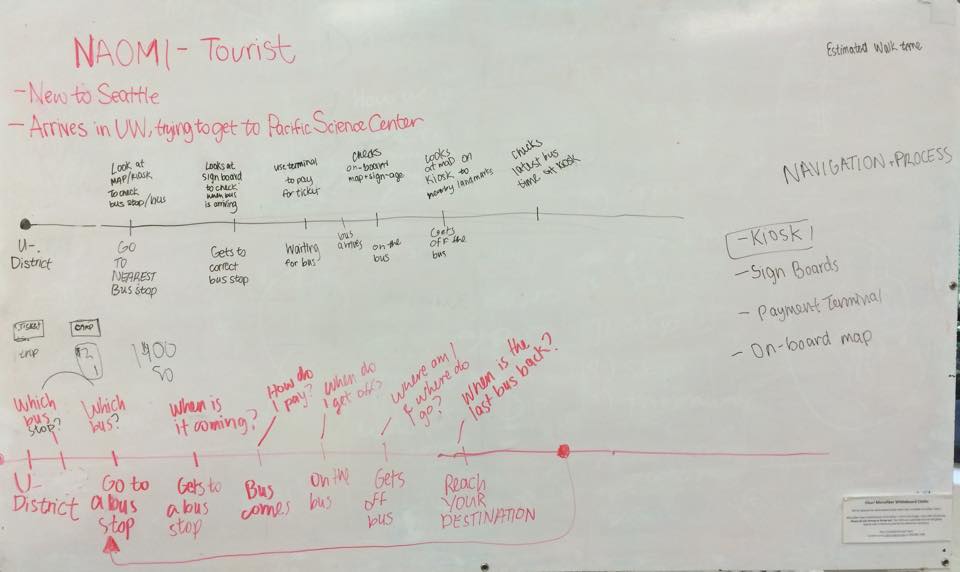 NAOMI - Tourist
Estimated Walk time
- New to Seattle
- Arrives in UW, trying to get to Pacific Science Center
NAVIGATION + PROCESS
Look at
MAP/KIOSK
To check
bus stop/bus
Looks at
sign board
to check
when bus
is arriving
use terminal
to pay
for ticket
checks
on-board
map + sign-age
Looks
at map on
Kiosk to
nearby landmarks
checks
latest bus
time at kiosk
U-
District
GO
TO
NEAREST
Bus stop
Gets to
correct
bus stop
Waiting
for bus
bus
arrives
on the
bus
Gets
off the
bus
- Kiosk
- Sign Boards
- Payment Terminal
- On-board map
TICKET
1 trip
Which
bus
stop?
Which
bus?
When is
it coming?
How do
I pay?
When do
I get off?
Where am I
& where do
I go?
When is the
last bus back?
U-
District
Go to
a bus
stop
Gets to
a bus
stop
Bus
comes
On the
bus
Gets
off
bus
Reach
YOUR
DESTINATION